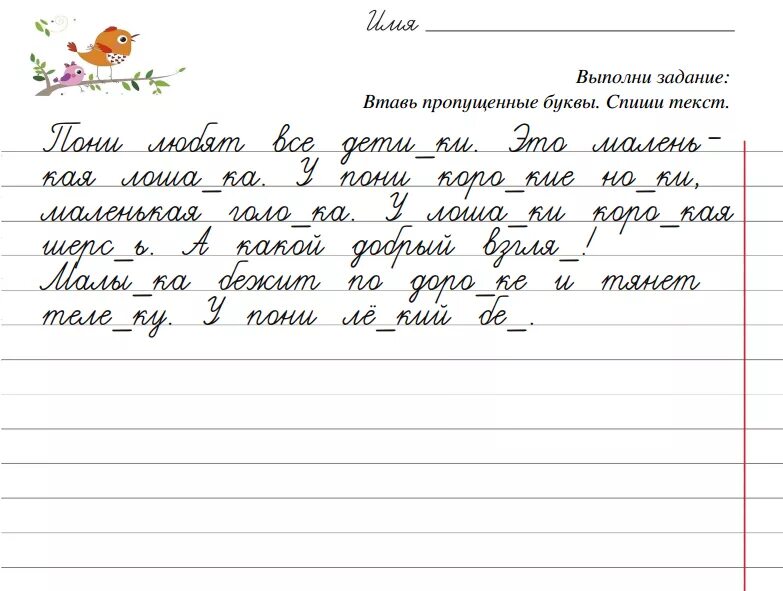 Имя
Выполни задание:
Втавь пропущенные буквы. Спиши текст.
Пони любят все дети_ки. Это малень-
кая лоша_ка. У пони коро_кие но_ки,
маленькая голо_ка. У лоша_ки коро_кая
шерс_ь. А какой добрый взгля_!
Малы_ка бежит по доро_ке и тянет
теле_ку. У пони лё_кий бе_.